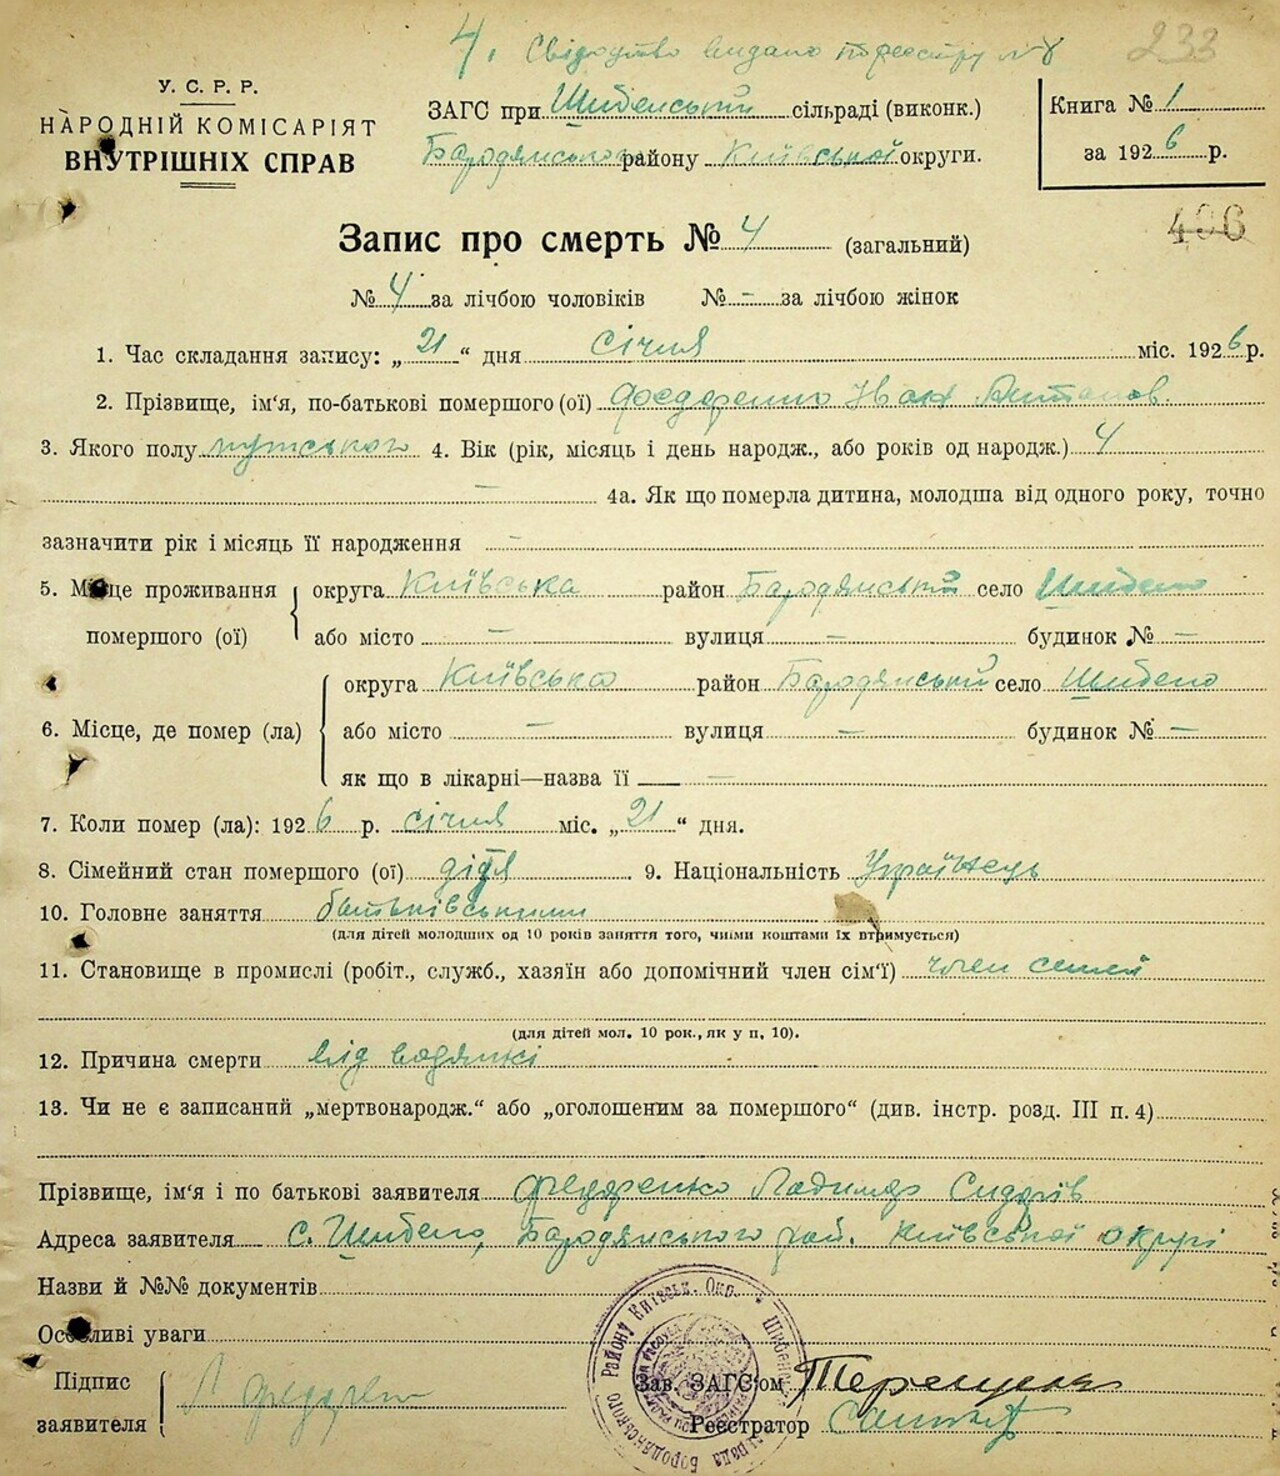 4. Свідоцтво видано по реєстру № 8 233
У. С. Р. Р.
НАРОДНІЙ КОМІСАРІЯТ
ВНУТРІШНІХ СПРАВ
ЗАГС при Шибенській сільраді (виконк.)
Бородянського району Київської округи.
Книга № 1
за 1926 р.
406
Запис про смерть № 4 (загальний)
№ 4 за лічбою чоловіків № - за лічбою жінок
1. Час складання запису: „21“ дня січня міс. 1926 р.
2. Прізвище, ім‘я, по-батькові помершого (ої) Федоренко Іван
3. Якого полу мужського 4. Вік (рік, місяць і день народж., або років од народж.) 4
— 4а. Як що померла дитина, молодша від одного року, точно
зазначити рік і місяць її народження —
5. Місце проживання помершого (ої) округа Київська район Бородянський село Шибено
або місто — вулиця — будинок № —
6. Місце, де помер (ла) округа Київська район Бородянський село Шибено
або місто — вулиця — будинок № —
як що в лікарні—назва її —
7. Коли помер (ла): 1926 р. січня міс. „21“ дня.
8. Сімейний стан помершого (ої) дітя 9. Національність Українець
10. Головне заняття
(для дітей молодших од 10 років заняття того, чиїми коштами їх втримується)
11. Становище в промислі (робіт., служб., хазяїн або допомічний член сім‘ї) член семей
(для дітей мол. 10 рок., як у п. 10).
12. Причина смерти від водянкі
13. Чи не є записаний „мертвонародж.“ або „оголошеним за помершого“ (див. інстр. розд. III п. 4)
Прізвище, ім‘я і по батькові заявителя Федоренко Ладимир Сидорів
Адреса заявителя с. Шибено, Бородянського рай. Київської округі
Назви й №№ документів
Особливі уваги
Підпис заявителя
Зав. ЗАГС‘ом
Реєстратор
Бородянського Району Київськ. Окр.